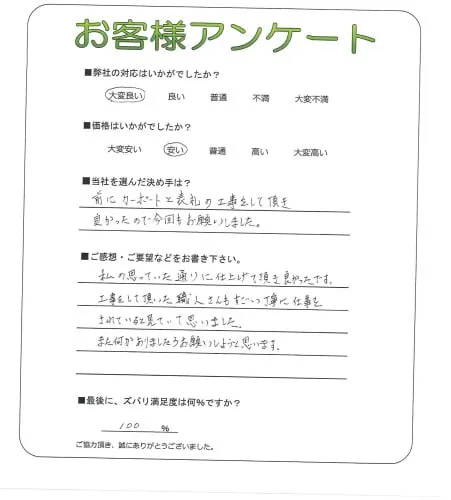 お客様アンケート
■弊社の対応はいかがでしたか？
大変良い 良い 普通 不満 大変不満
■価格はいかがでしたか？
大変安い 安い 普通 高い 大変高い
■当社を選んだ決め手は？
前にカーポートと表札の工事をして頂き
良かったので今回もお願いしました。
■ご感想・ご要望などをお書き下さい。
私の思っていた通りに仕上げて頂き良かったです。
工事をして頂いた職人さんもすごい丁寧に仕事を
されていると見ていて思いました。
また何かありましたらお願いしようと思います。
■最後に、ズバリ満足度は何%ですか？
100 %
ご協力頂き、誠にありがとうございました。